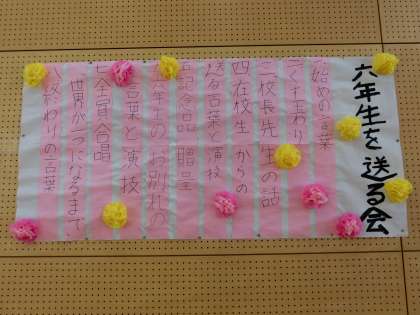 六年生を送る会
一始めの言葉
二くす玉わり
三校長先生の話
四在校生からの
送る言葉と演技
五記念品贈呈
六六年生のお別れの
言葉と演技
七全員合唱
世界が一つになるまで
八終わりの言葉